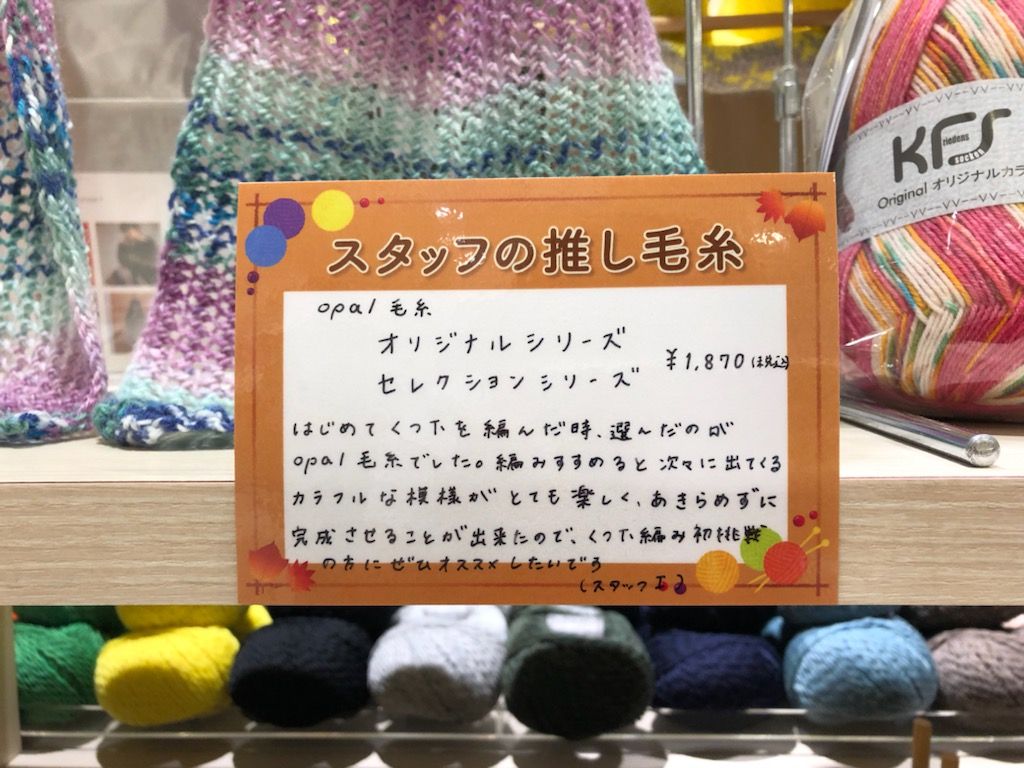 スタッフの推し毛糸
opal 毛糸
オリジナルシリーズ
セレクションシリーズ ¥1,870(税込)
はじめてくつ下を編んだ時、選んだのが
opal毛糸でした。編みすすめると次々に出てくる
カラフルな模様がとても楽しく、あきらめずに
完成させることが出来たので、くつ下編み初挑戦
の方にぜひオススメしたいです
(スタッフ I)
KFS
riedens
socket
Original オリジナルカラ